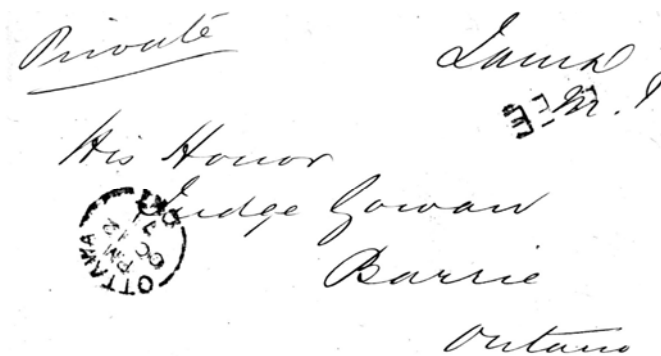 Private
His Honor
Judge Gowan
Barrie
Ontario
OTTAWA
PM
OC 12